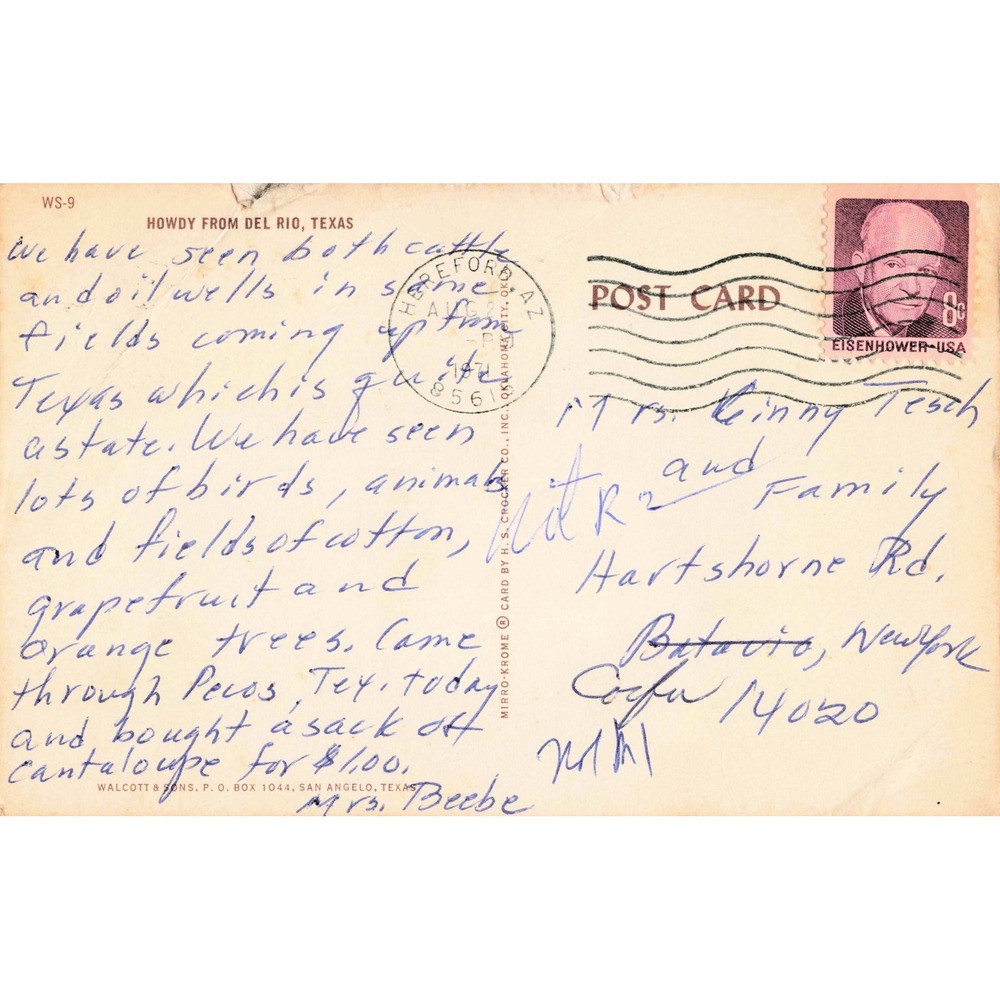 WS-9
HOWDY FROM DEL RIO, TEXAS
We have seen both cattle
and oil wells in same
fields coming up from
Texas which is quite
a state. We have seen
lots of birds, animals
and fields of cotton,
grapefruit and
orange trees. Came
through Pecos, Tex. today
and bought a sack off
cantaloupe for $1.00.
Mrs. Beebe
WALCOTT & SONS, P. O. BOX 1044, SAN ANGELO, TEXAS
MIRRO-KROME ® CARD BY H. S. CROCKER CO., INC., OKLAHOMA CITY, OKLA
HEREFORD, AZ
AUG
1971
85615
POST CARD
8¢
EISENHOWER·USA
Mrs. Ginny Tesch
and
Family
Hartshorne Rd.
Batavia, New York
14020